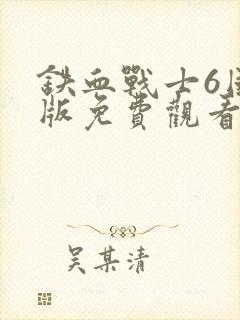 鉄血戰士6国
版免費觀看
吴某清